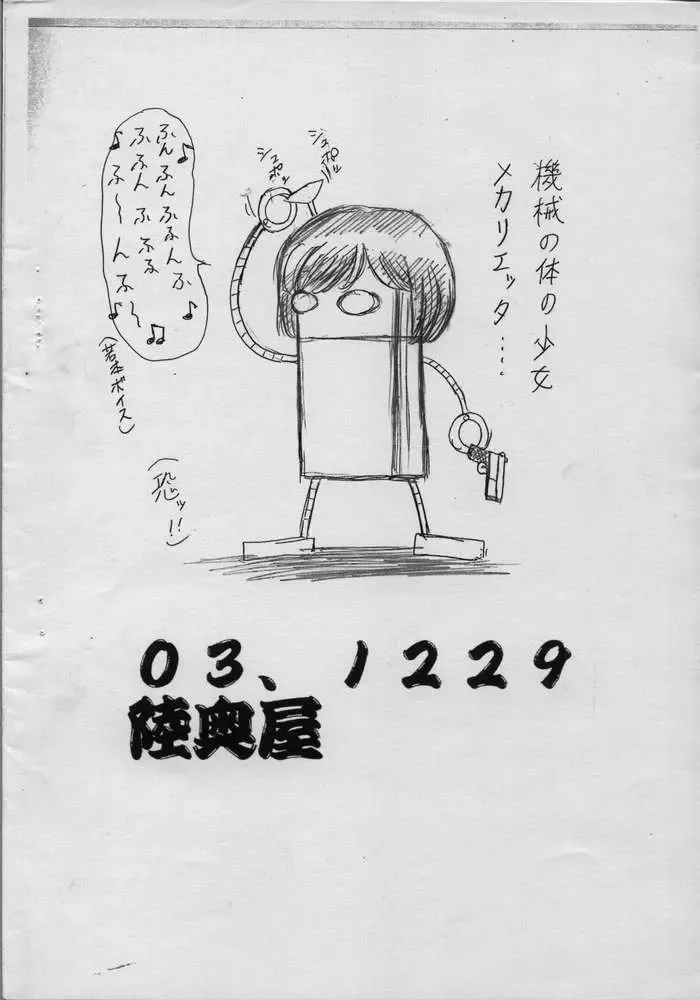 機械の体の少女
メカリエッタ……
ジュポッ
ジュポッ
ふんふんふるんふ♪
ふふんふふる
ふ〜んふ〜♪
(若本ボイス)
(恐ッ!!)
03、1229
陸奥屋